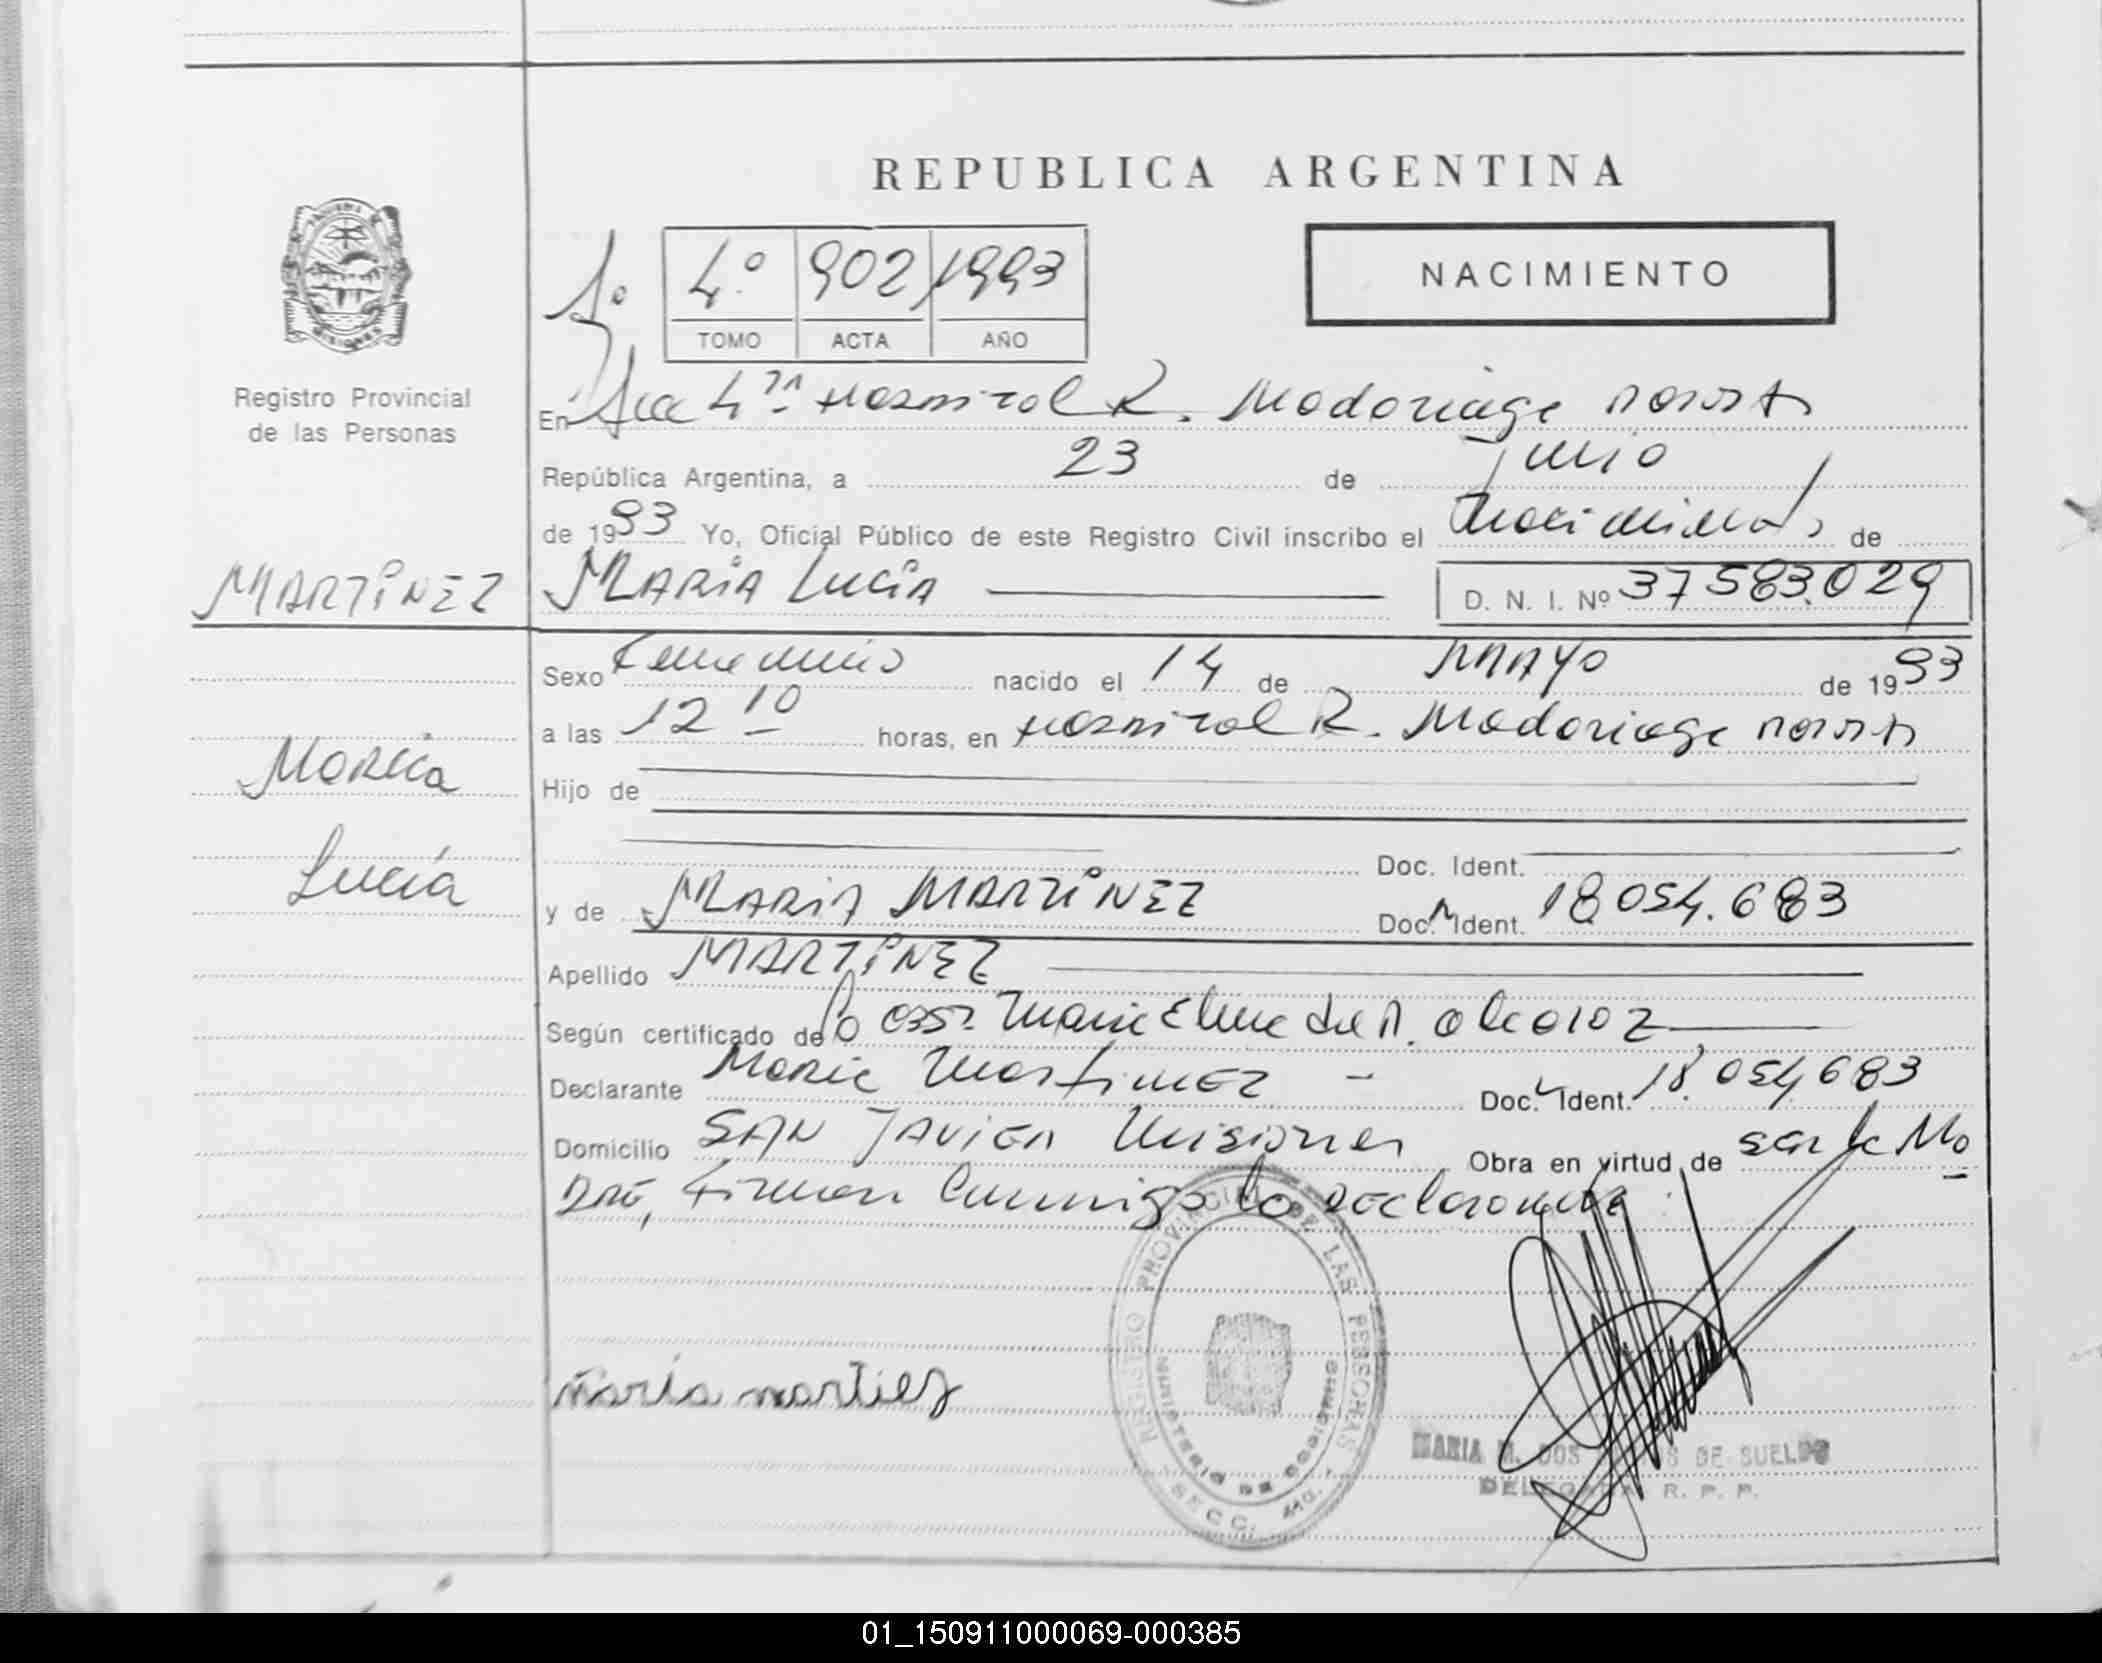 REPUBLICA ARGENTINA
NACIMIENTO
1º 4º 902 1993
TOMO ACTA AÑO
Registro Provincial
de las Personas
En Sec 4ta Hospital R. Madariaga
República Argentina, a 23 de Junio
de 1993 Yo, Oficial Público de este Registro Civil inscribo el nacimiento de
MARTINEZ MARIA LUCIA D. N. I. Nº 37583.029
Sexo Femenino nacido el 14 de MAYO de 1993
a las 12 10 horas, en Hospital R. Madariaga
Maria
Hijo de
Lucía
Doc. Ident.
y de MARIA MARTINEZ Doc. Ident. 18.054.683
Apellido MARTINEZ
Según certificado de la Maria Elena
Declarante Maria Martinez - Doc. Ident. 18.054.683
Domicilio SAN JAVIER Misiones Obra en virtud de ser la Ma
dre, Firman Conmigo la Declarante
REGISTRO PROVINCIAL DE LAS PERSONAS
MINISTERIO DE GOBIERNO
SECC. 4ta.
maria martiez
MARIA M. DOS DE SUELDO
DELEGADA R. P. P.
01_150911000069-000385